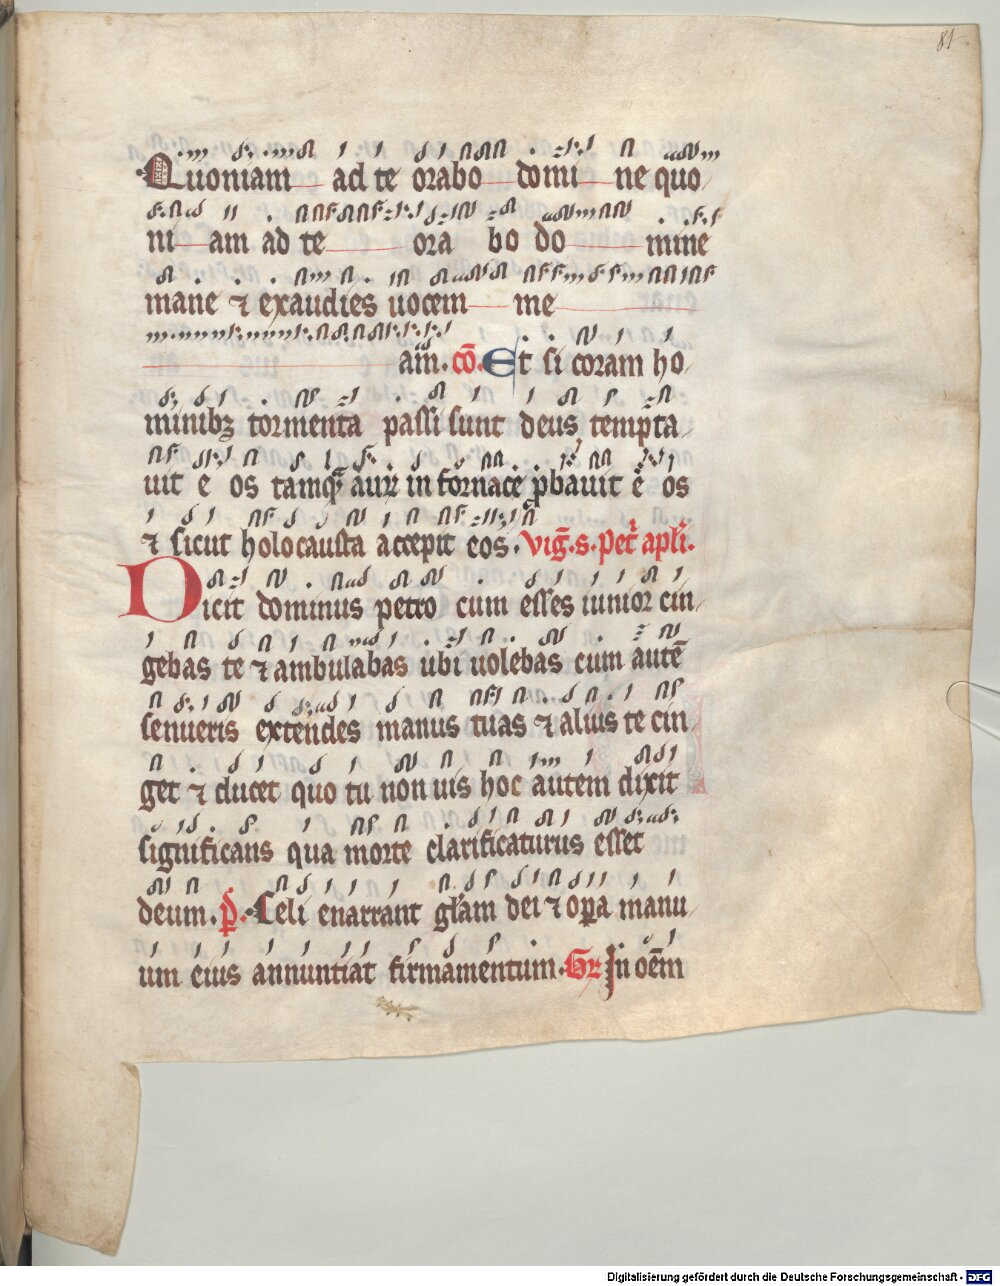 81
Quoniam ad te orabo domi ne quo
ni am ad te ora bo do mine
mane ⁊ exaudies uocem me
am̄. cō. Et si coram ho
minibꝫ tormenta passi sunt deus tempta
uit e os tamqͣ̄ auꝝ in fornace ꝓbauit e os
⁊ sicut holocausta accepit eos. viḡ. s. petͥ apłi.
Dicit dominus petro cum esses iunior cin
gebas te ⁊ ambulabas ubi uolebas cum autē
senueris extendes manus tuas ⁊ alius te cin
get ⁊ ducet quo tu non uis hoc autem dixit
significans qua morte clarificaturus esset
deum. p̄. Celi enarrant głam dei ⁊ oꝑa manu
um eius annuntiat firmamentum. Gr In oēm
Digitalisierung gefördert durch die Deutsche Forschungsgemeinschaft - DFG